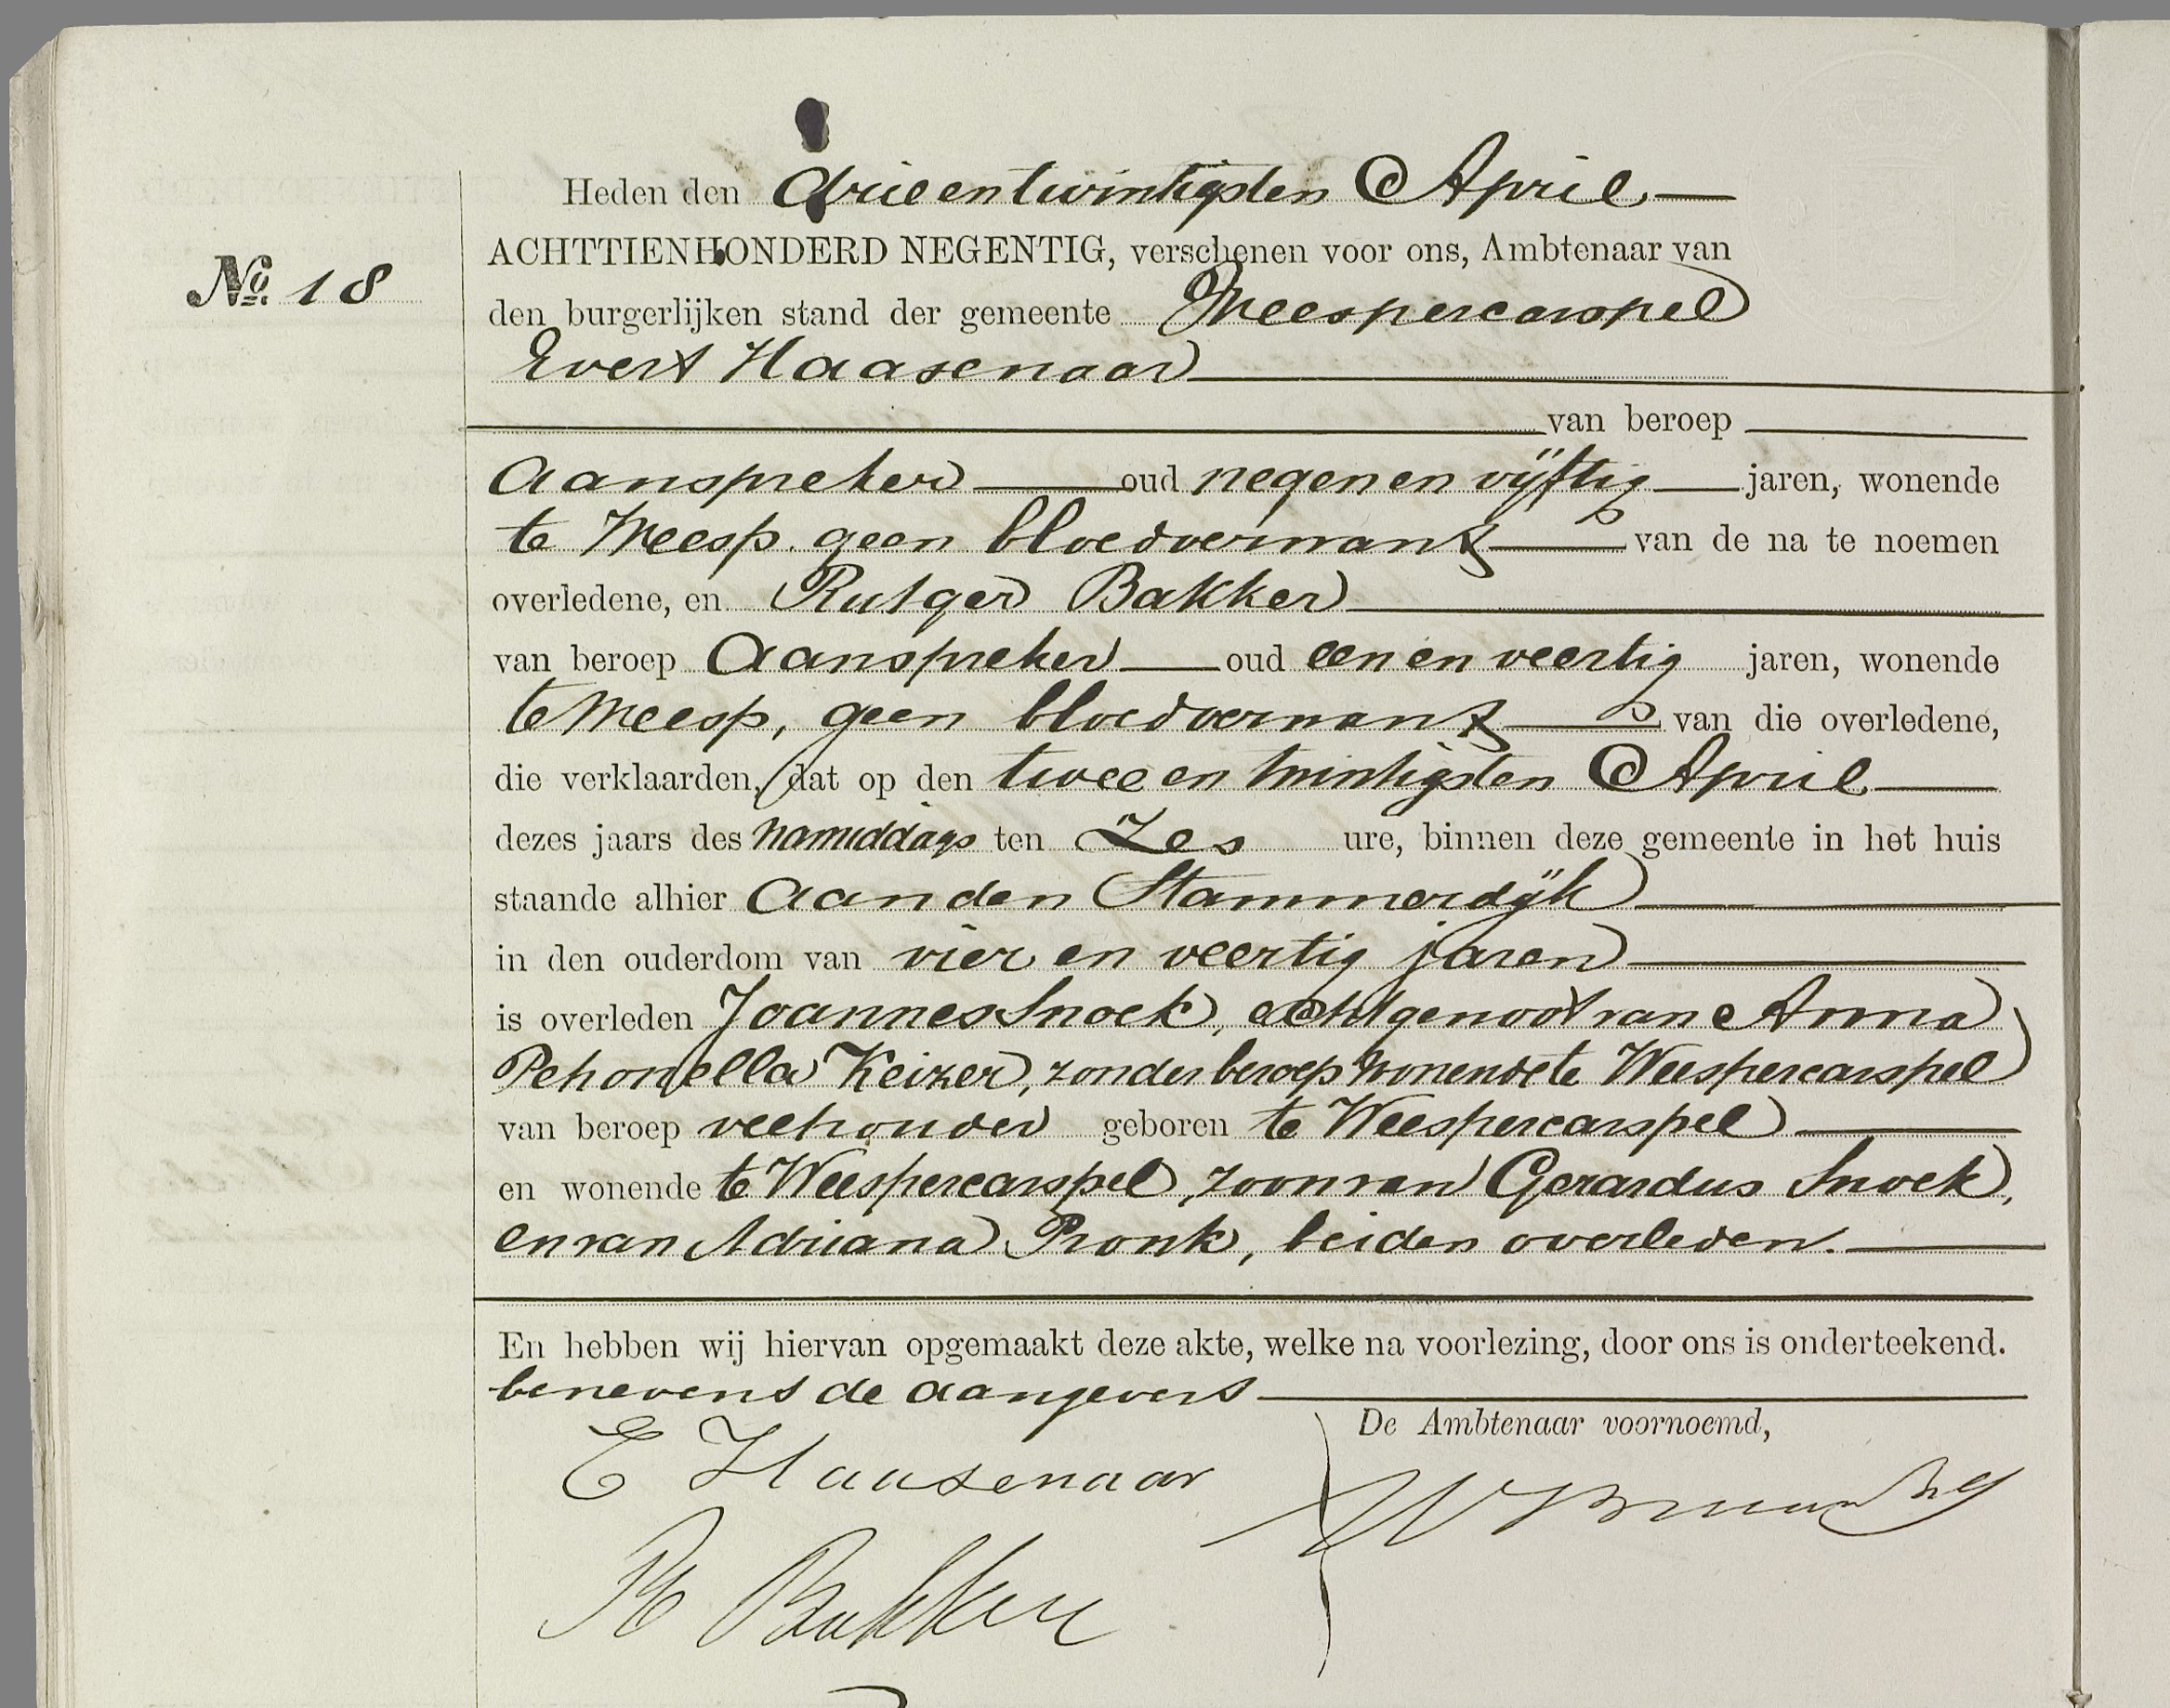 Heden den drieentwintigsten April
ACHTTIENHONDERD NEGENTIG, verschenen voor ons, Ambtenaar van
No. 18
den burgerlijken stand der gemeente Weespercarspel
Evert Haasenaar
van beroep
Aanspreker oud negen en vijftig jaren, wonende
te Weesp. geen bloedverwant van de na te noemen
overledene, en Rutger Bakker
van beroep Aanspreker oud een en veertig jaren, wonende
te Weesp, geen bloedverwant van die overledene,
die verklaarden, dat op den twee en twintigsten April
dezes jaars des namiddags ten Zes ure, binnen deze gemeente in het huis
staande alhier aan den Stammerdijk
in den ouderdom van vier en veertig jaren
is overleden Joannes Snoek, echtgenoot van Anna
Petronella Keizer, zonder beroep wonende te Weespercarspel
van beroep veehouder geboren te Weespercarspel
en wonende te Weespercarspel, zoon van Gerardus Snoek,
en van Adriana Pronk, beiden overleden.
En hebben wij hiervan opgemaakt deze akte, welke na voorlezing, door ons is onderteekend.
benevens de aangevers
De Ambtenaar voornoemd,
E Haasenaar
R Bakker